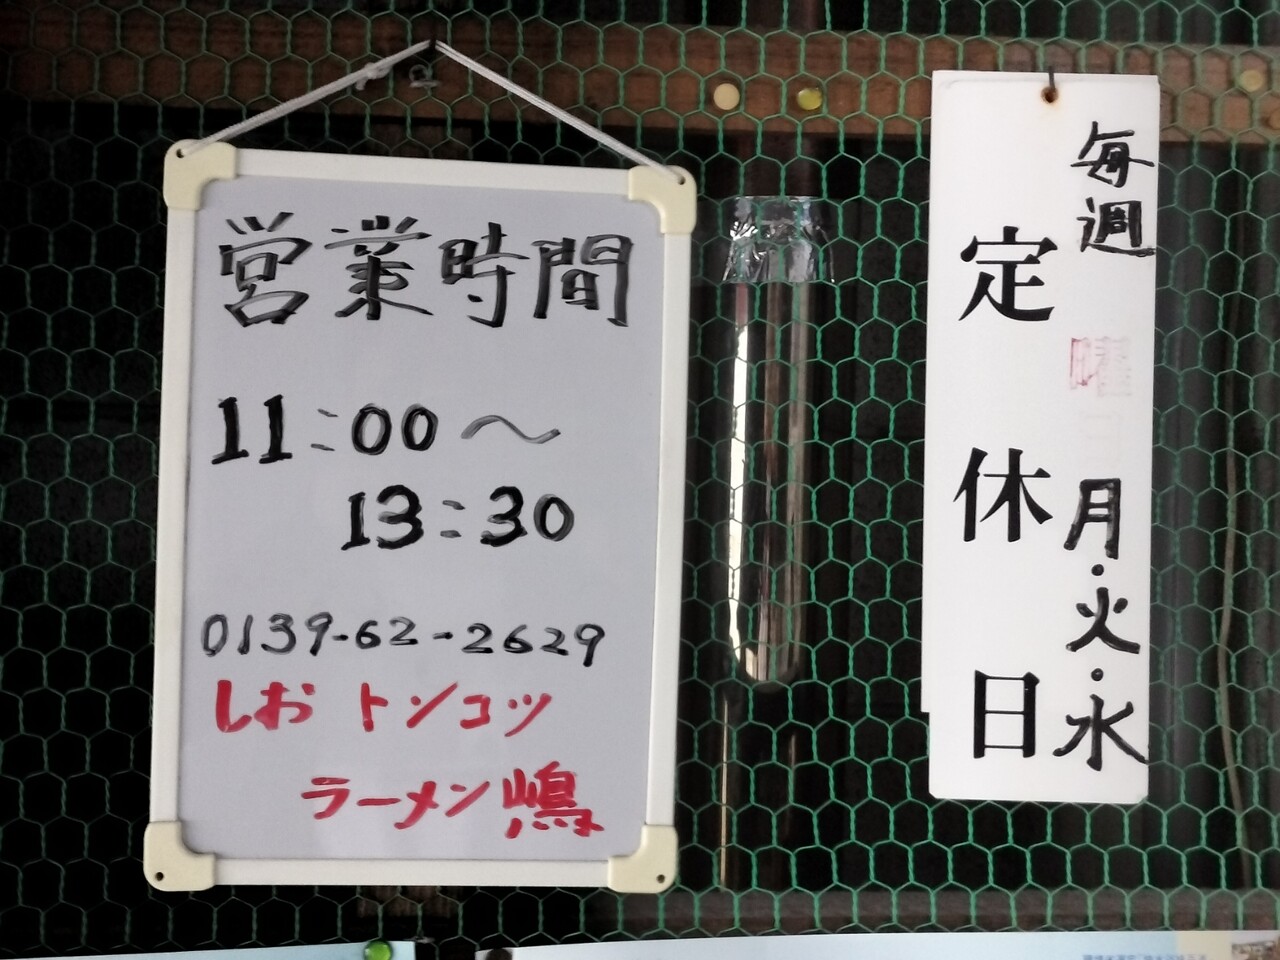 営業時間
11:00〜
13:30
0139-62-2629
しお トンコツ
ラーメン 嶋
毎週 曜日 月・火・水
定休日